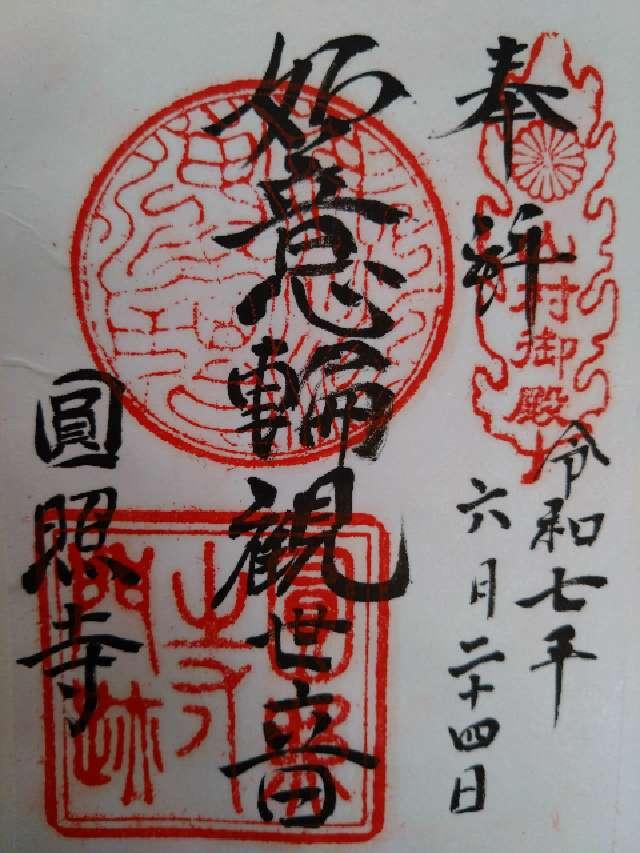 奉拝
山村御殿
令和七年
六月二十四日
如意輪観世音
圓照寺
圓照
寺
門跡